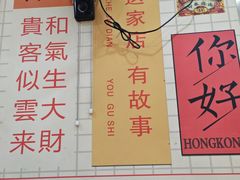 和氣生大財
貴客似雲来
家
有故事
DIAN
YOU GU SHI
你好
HONGKON